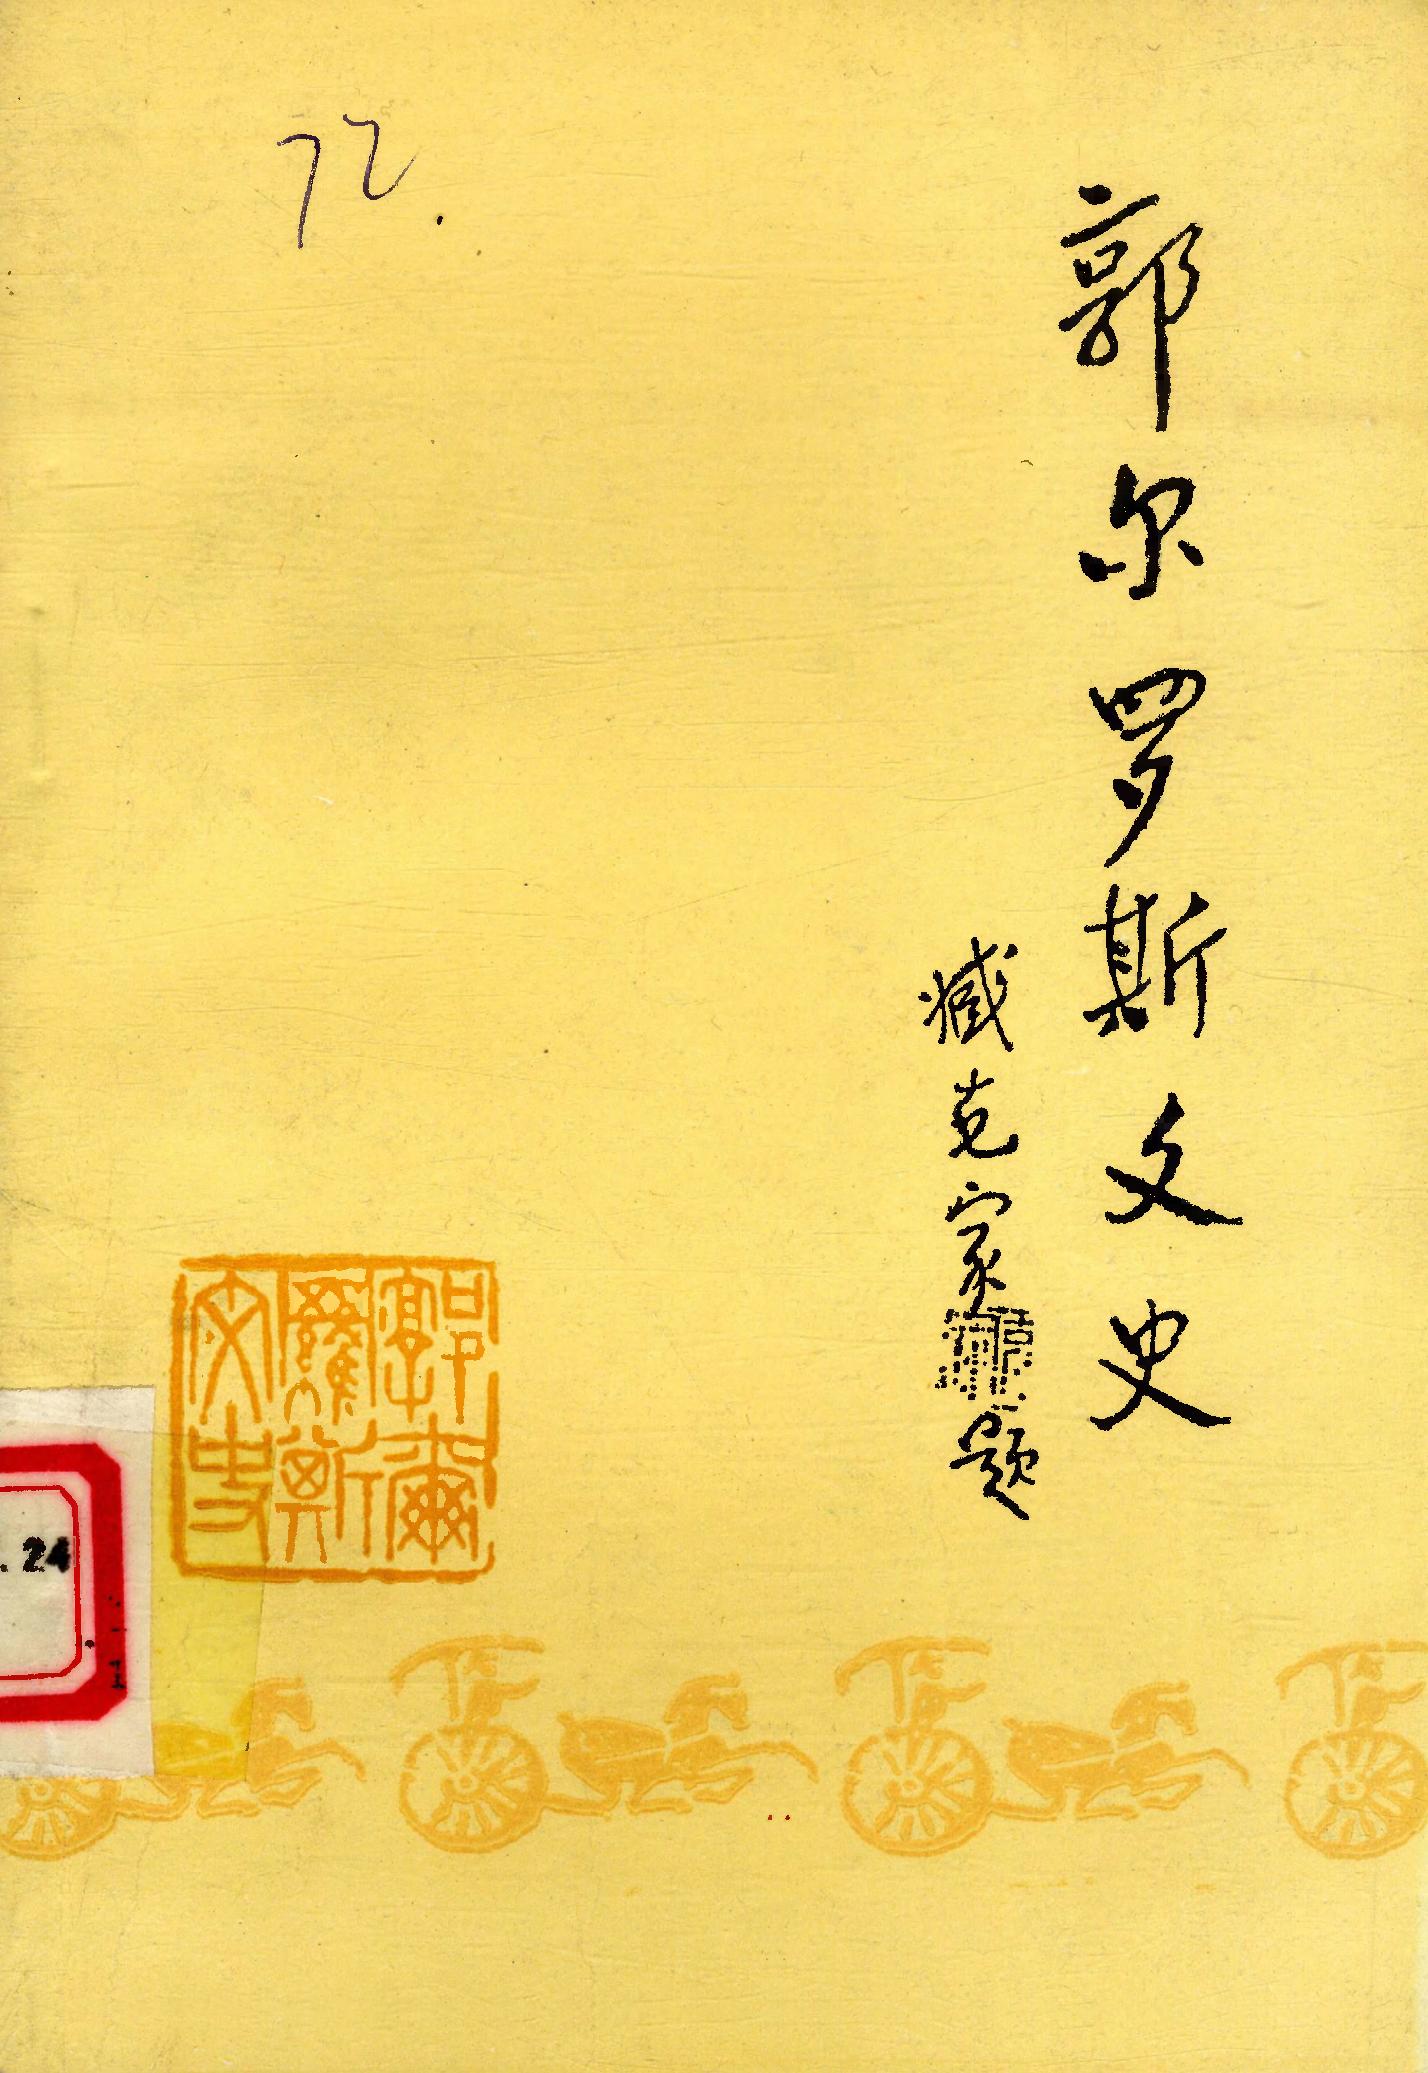 72.
郭尔罗斯文史
臧克家
题
郭爾
羅斯
文史
. 24
1